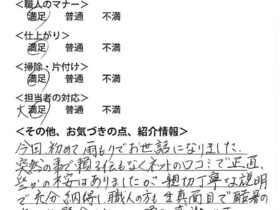 <職人のマナー>
満足 普通 不満
<仕上がり>
満足 普通 不満
<掃除・片付け>
満足 普通 不満
<担当者の対応>
大満足 普通 不満
<その他、お気づきの点、紹介情報>
今回初めて雨もりでお世話になりました。
突然の事で頼る伝もなくネットの口コミで正直
不安はありましたが、親切丁寧な説明
で充分納得し職人の方も生真面目で